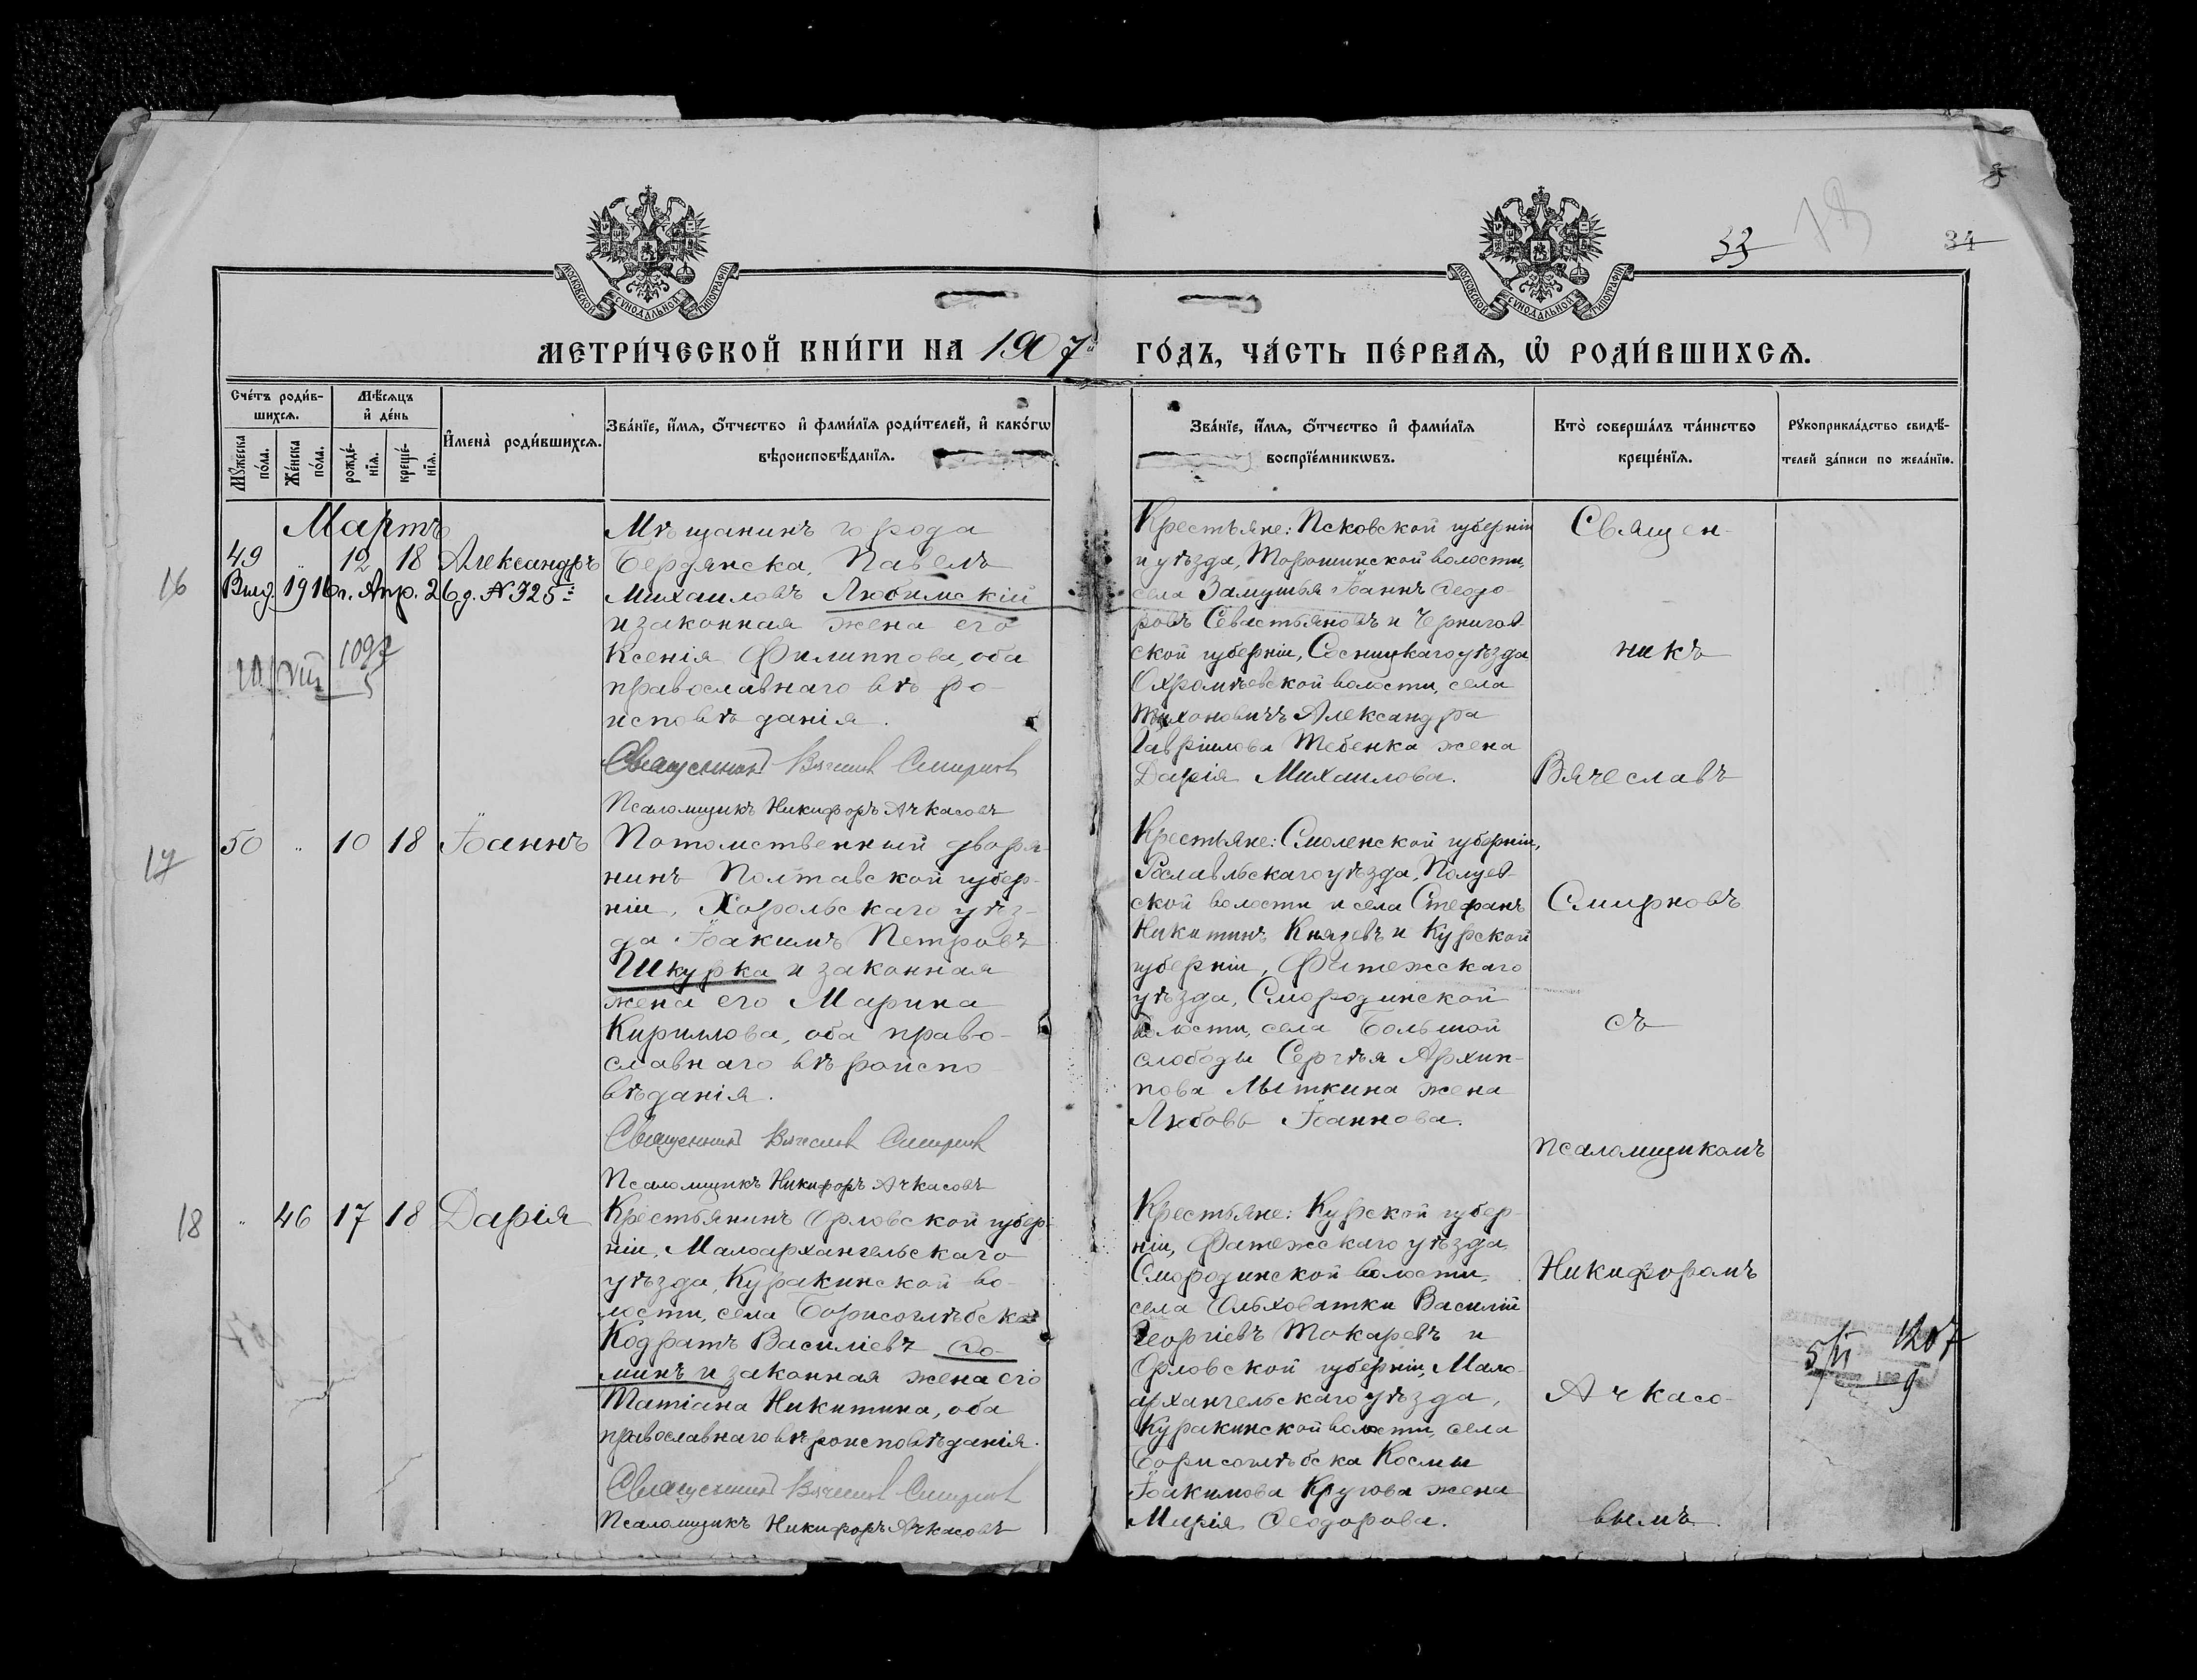 33
18
34
МОСКОВСКОЙ СУНОДАЛЬНОЙ ТИПОГРАФІИ
МОСКОВСКОЙ СУНОДАЛЬНОЙ ТИПОГРАФІИ
МЕТРИ́ЧЕСКОЙ КНИ́ГИ НА 1907й ГО́ДЪ, ЧА́СТЬ ПЕ́РВАѦ, Ѡ҆ РОДИ́ВШИХСѦ.
Сче́тъ роди́в-
шихсѧ.
Мꙋ́жеска по́ла.
Же́нска по́ла.
Мѣ́сѧцъ
и҆ де́нь
рожде́-нїѧ.
креще́-нїѧ.
И҆мена̀ роди́вшихсѧ.
Зва́нїе, и҆́мѧ, ѻ҆́тчество и҆ фами́лїѧ роди́телей, и҆ како́гѡ
вѣроисповѣ́данїѧ.
Зва́нїе, и҆́мѧ, ѻ҆́тчество и҆ фами́лїѧ
воспрїе́мникѡвъ.
Кто̀ соверша́лъ та́инство
креще́нїѧ.
Рꙋкоприкла́дство свидѣ́-
телей за́писи по жела́нїю.
Мартъ
16
49 " 12 18 Александръ
Выд. 1916 г. Апр. 26 д. № 325
1097
5
Мѣщанинъ города
Бердянска, Павелъ
Михаиловъ Любимскій
и законная жена его
Ксенія Филиппова, оба
православнаго вѣро-
исповѣданія.
Священникъ Вячеславъ Смирновъ
Псаломщикъ Никифоръ Ачкасовъ
Крестьяне: Псковской губерніи
и уѣзда, Торошинской волости,
села Замушья Іоаннъ Ѳеодо-
ровъ Севастьяновъ и Чернигов-
ской губерніи, Сосницкаго уѣзда
Охромѣевской волости, села
Тихоновичъ Александра
Гавріилова Тебенка жена
Дарія Михаилова.
17
50 " 10 18 Іоаннъ
Потомственный дворя-
нинъ Полтавской губер-
ніи, Хорольскаго уѣз-
да Іоакимъ Петровъ
Шкурка и законная
жена его Марина
Кириллова, оба право-
славнаго вѣроиспо-
вѣданія.
Священникъ Вячеславъ Смирновъ
Псаломщикъ Никифоръ Ачкасовъ
Крестьяне: Смоленской губерніи,
Рославльскаго уѣзда, Полуев-
ской волости и села Стефанъ
Никитинъ Князевъ и Курской
губерніи, Фатежскаго
уѣзда, Смородинской
волости, села Большой
слободы Сергѣя Архип-
пова Лыткина жена
Любовь Іоаннова.
18
" 46 17 18 Дарія
Крестьянинъ Орловской губер-
ніи, Малоархангельскаго
уѣзда, Куракинской во-
лости, села Борисоглѣбска
Кодратъ Василіевъ Ѳо-
минъ и законная жена его
Татіана Никитина, оба
православнаго вѣроисповѣданія.
Священникъ Вячеславъ Смирновъ
Псаломщикъ Никифоръ Ачкасовъ
Крестьяне: Курской губер-
ніи, Фатежскаго уѣзда,
Смородинской волости,
села Ольховатки Василій
Георгіевъ Токаревъ и
Орловской губерніи, Мало-
архангельскаго уѣзда,
Куракинской волости, села
Борисоглѣбска Космы
Іоакимова Кругова жена
Марія Ѳеодорова.
Священ-
никъ
Вячеславъ
Смирновъ
съ
псаломщикомъ
Никифоромъ
Ачкасо-
вымъ.
5/VI 1207
9